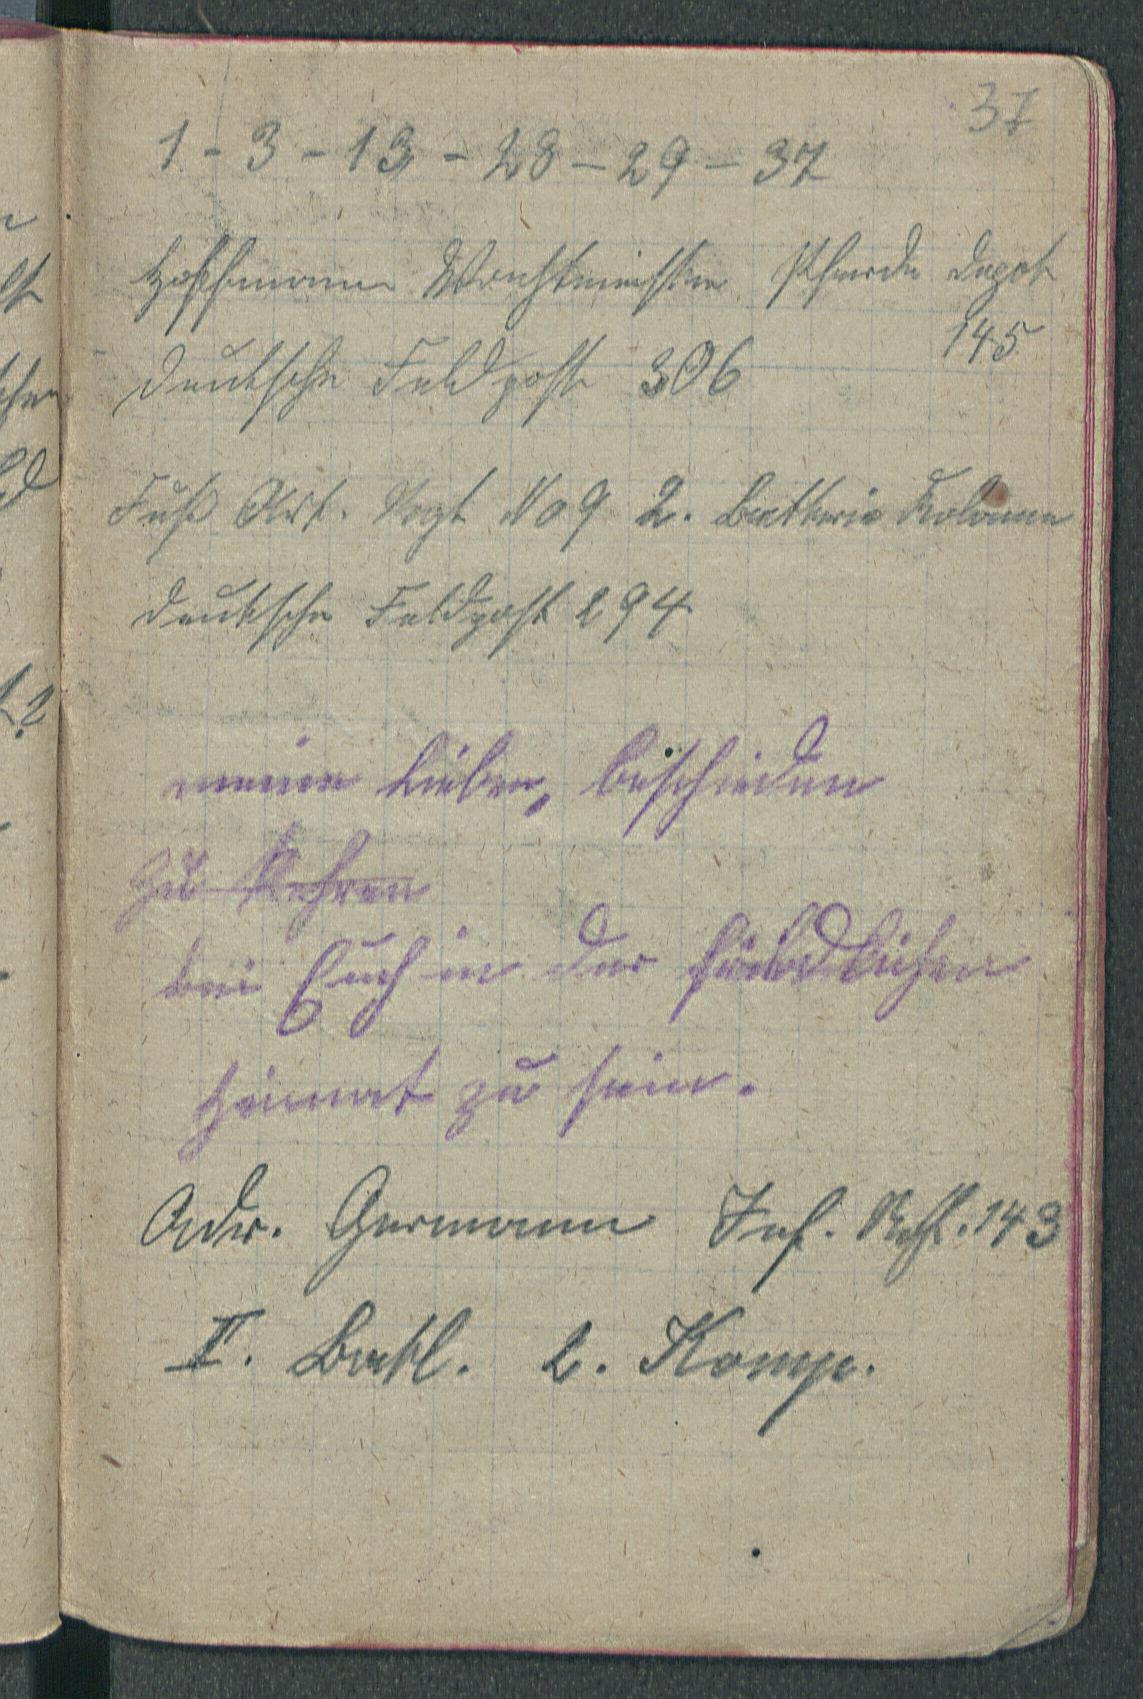 37
1 - 3 - 13 - 28 - 29 - 37
Hoffmann Wachtmeister Pferde Depot
145
deutsche Feldpost 306
Fuß Art. No 9 2. Batterie Kolonne
deutsche Feldpost 294
meine Lieben, beschieden
zu
bei Euch in der friedlichen
Heimat zu sein.
Adr. Germann Inf. Regt. 143
II. Batl. 2. Komp.